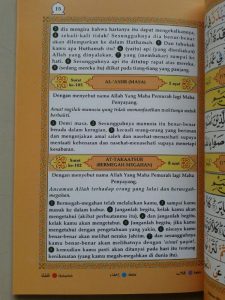 15
dia mengira bahwa hartanya itu dapat mengekalkannya,
sekali tidak! Sesungguhnya dia benar-benar
akan dilemparkan ke dalam Huthamah. Dan tahukah
kamu apa Huthamah itu? (yaitu) api (yang disediakan)
Allah yang dinyalakan, yang (membakar) sampai ke
hati. Sesungguhnya api itu ditutup rapat atas mereka,
(sedang mereka itu) diikat pada tiang-tiang yang panjang.
Surat ke-103
AL-'ASHR (MASA)
3 ayat
Dengan menyebut nama Allah Yang Maha Pemurah lagi Maha
Penyayang.
Amat rugilah manusia yang tidak memanfaatkan waktunya untuk
berbakti.
Demi masa. Sesungguhnya manusia itu benar-benar
berada dalam kerugian, kecuali orang-orang yang beriman
dan mengerjakan amal saleh dan nasehat-menasehati supaya
mentaati kebenaran dan nasehat-menasehati supaya menetapi
kesabaran.
Surat ke-102
AT-TAKAATSUR
(BERMEGAH-MEGAHAN)
8 ayat
Dengan menyebut nama Allah Yang Maha Pemurah lagi Maha
Penyayang.
Ancaman Allah terhadap orang yang lalai dan bermegah-
megahan.
Bermegah-megahan telah melalaikan kamu, sampai kamu
masuk ke dalam kubur. Janganlah begitu, kelak kamu akan
mengetahui (akibat perbuatanmu itu), dan janganlah begitu,
kelak kamu akan mengetahui. Janganlah begitu, jika kamu
mengetahui dengan pengetahuan yang yakin, niscaya kamu
benar-benar akan melihat neraka Jahiim, dan sesungguhnya
kamu benar-benar akan melihatnya dengan 'ainul yaqin.
kemudian kamu pasti akan ditanyai pada hari itu tentang
kenikmatan (yang kamu megah-megahkan di dunia itu).